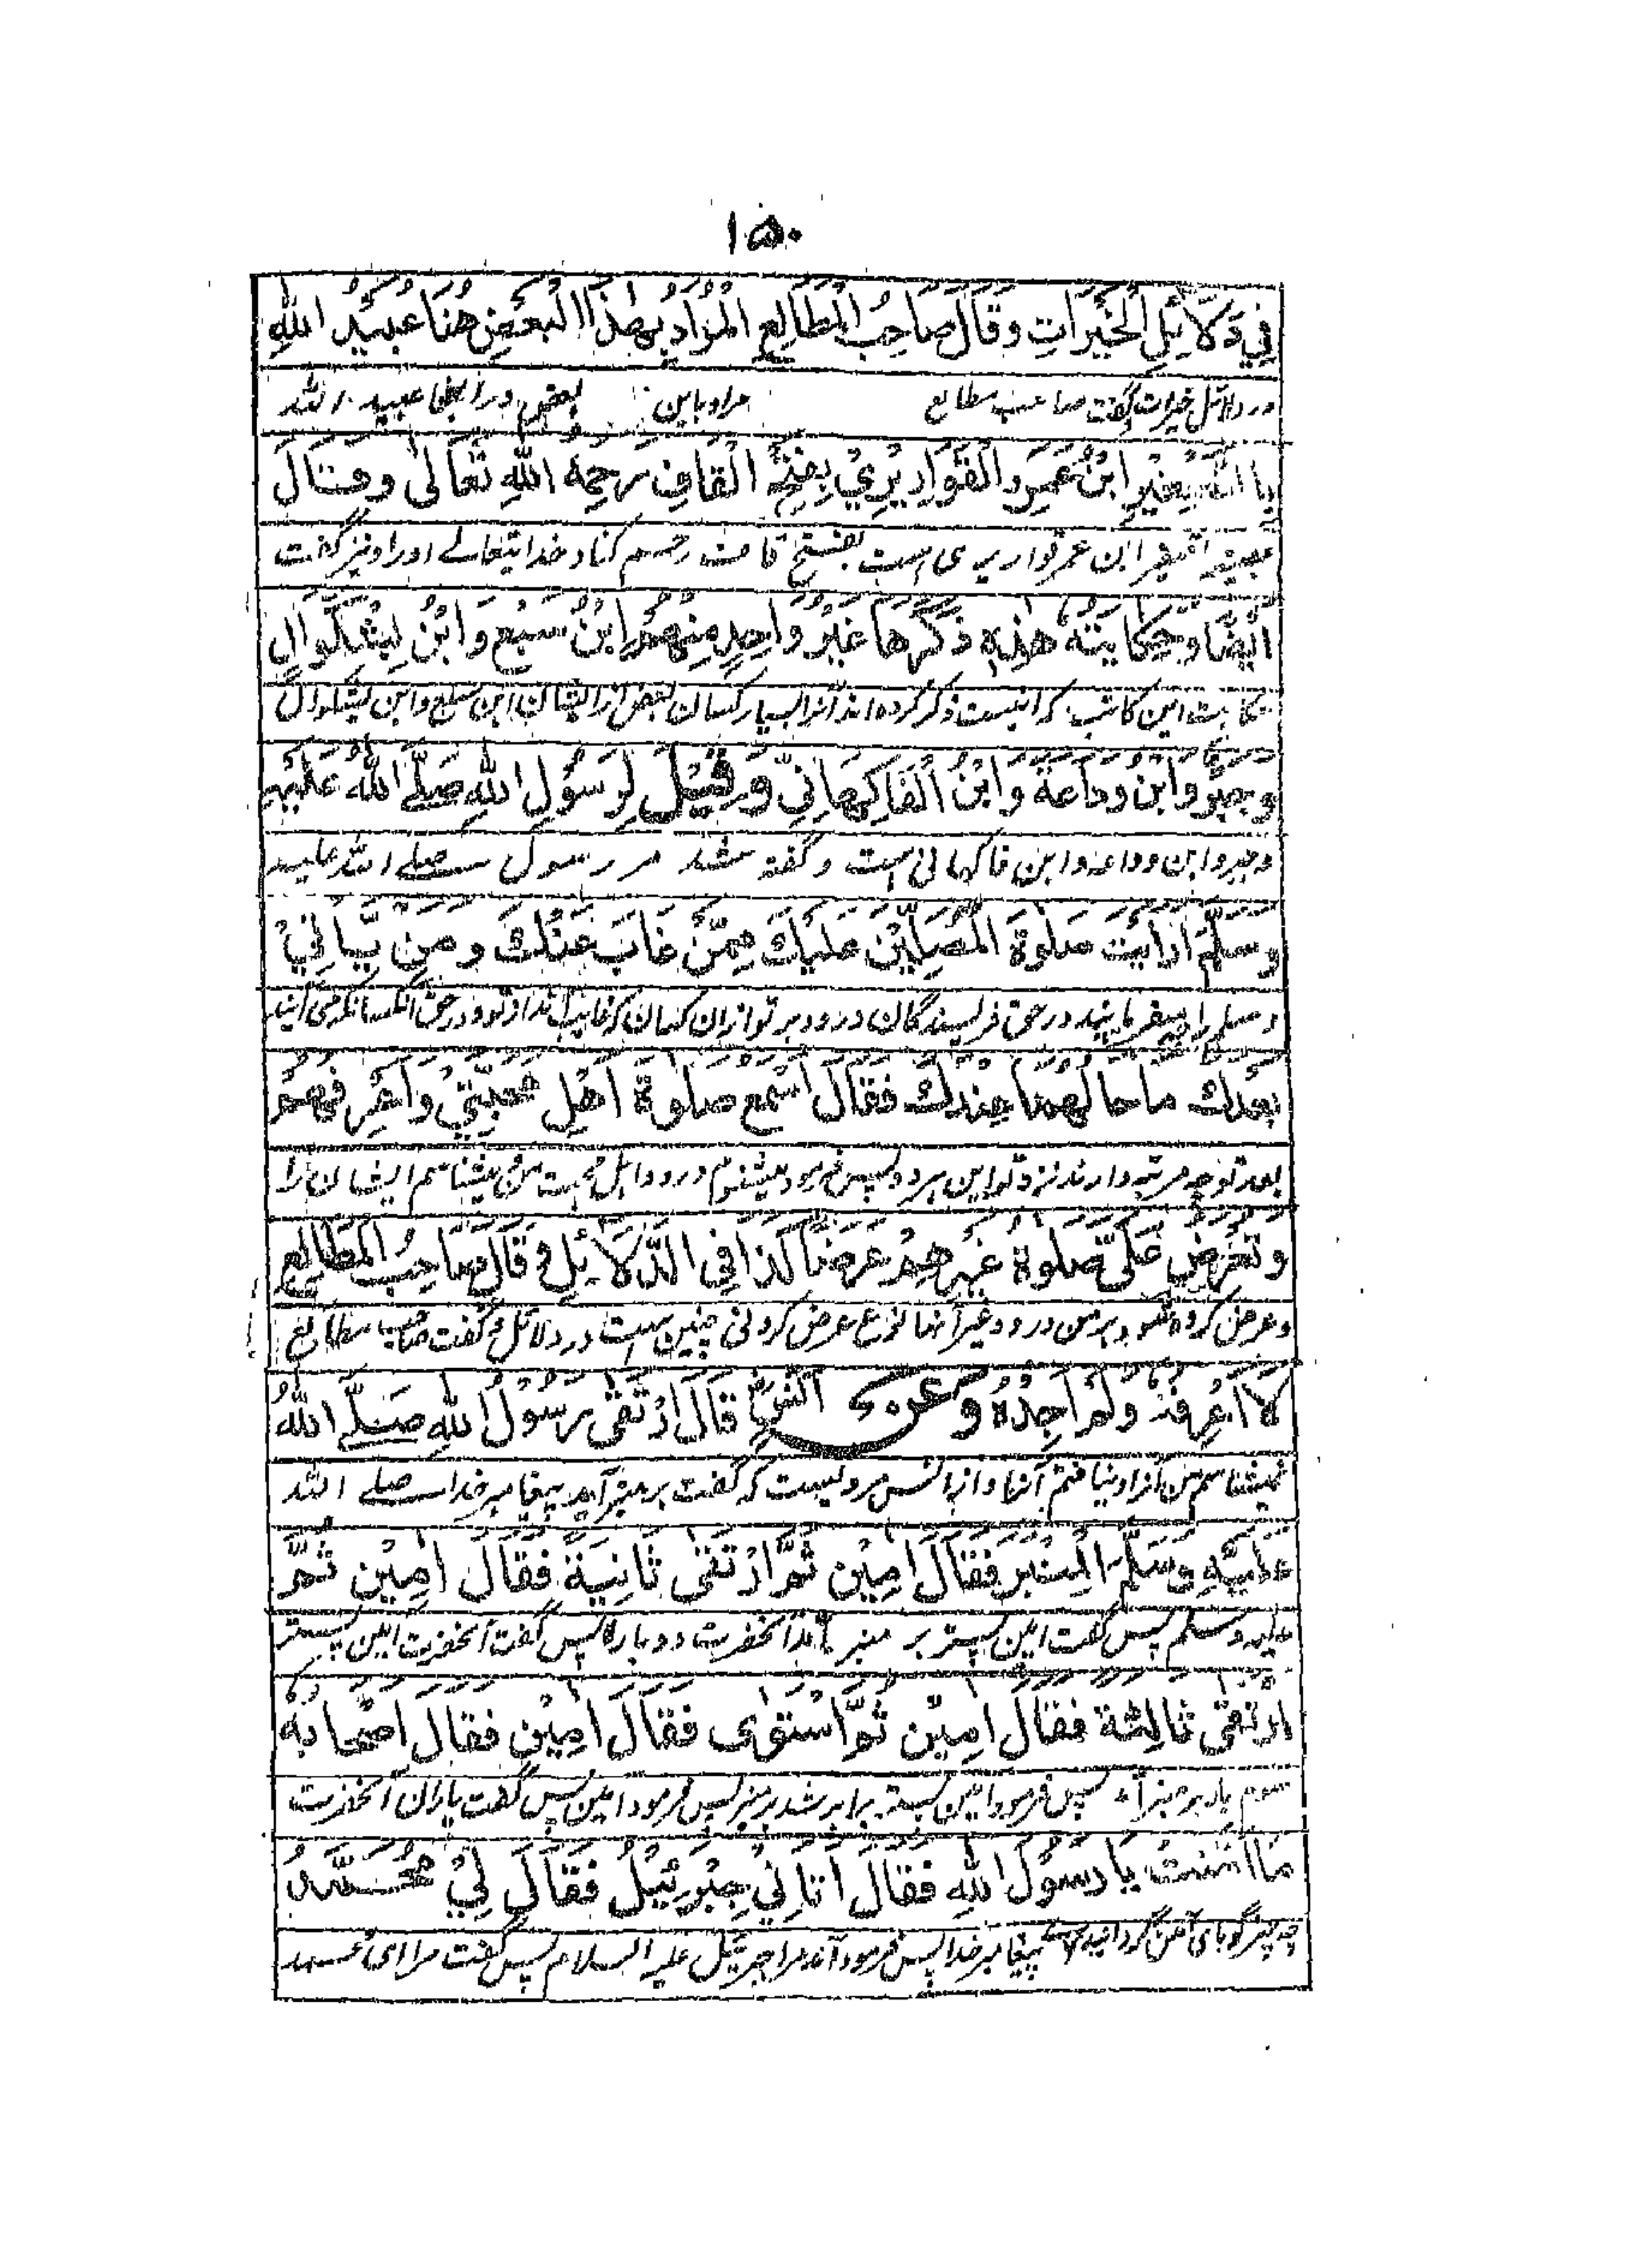 ۱۵۰
فِي دَلَائِلِ الْخَيْرَاتِ وَقَالَ صَاحِبُ الْمَطَالِعِ الْمُرَادُ بِهٰذَا الْبَعْضِ هُنَا عُبَيْدُ اللهِ
در دلائل خیرات گفت صاحب مطالع مراد باین بعض در اینجا عبید الله
بِالتَّصْغِيْرِ ابْنُ عُمَرَ الْقَوَارِيْرِيُّ بِفَتْحِ الْقَافِ رَحِمَهُ اللهِ تَعَالٰى وَقَالَ
ابن عمر قواریری است بفتح قاف رحم کناد خدایتعالے اورا و نیز گفت
اَيْضًا وَحِكَايَتُهُ هٰذِهٖ ذَكَرَهَا غَيْرُ وَاحِدٍ مِنْهُمُ ابْنُ سَبُعٍ وَابْنُ بَشْكُوَالِ
حکایت این کاتب که اینست ذکر کرده اند آنرا بسیار کسان بعض از ایشان ابن سبع و ابن بشکوال
وَجَبْرٌ وَابْنُ وَدَاعَةَ وَابْنُ الْفَاكِهَانِيِّ وَقِيْلَ لِرَسُوْلِ اللهِ صَلَّے اللهُ عَلَيْهِ
و جبر و ابن وداعه و ابن فاکهانی است و گفته شد مر رسول صلے الله علیه
وَسَلَّمَ اَرَاَيْتَ صَلٰوةَ الْمُصَلِّيْنَ عَلَيْكَ مِمَّنْ غَابَ عَنْكَ وَمَنْ يَّاْتِيْ
وسلم را در حق فرستندگان درود بر تو ازان کسان که غایب اند از تو و در حق آنکسانکه می آیند
بَعْدَكَ مَا حَالُهُمَا عِنْدَكَ فَقَالَ اَسْمَعُ صَلٰوةَ اَهْلِ مَحَبَّتِيْ وَاَعْرِفُهُمْ
بعد تو چه مرتبه دارند نزد تو این هر دو پس فرمود میشنوم درود اهل محبت من و میشناسم ایشان را
وَتُعْرَضُ عَلَيَّ صَلٰوةُ غَيْرِهِمْ عَرْضًا كَذَا فِي الدَّلَائِلِ وَقَالَ صَاحِبُ الْمَطَالِعِ
و عرض کرده میشود بر من درود غیر آنها نوع عرض کردنی چنین است در دلائل و گفت صاحب مطالع
لَا اَعْرِفُهُ وَلَمْ اَجِدْهُ وَعَنْ اَنَسٍ قَالَ ارْتَقٰى رَسُوْلُ اللهِ صَلَّے اللهُ
نمیشناسم من آنرا و نیافتم آنرا و از انس مرویست که گفت بر منبر آمد پیغامبر خدا صلے الله
عَلَيْهِ وَسَلَّمَ الْمِنْبَرَ فَقَالَ اٰمِيْنَ ثُمَّ ارْتَقٰى ثَانِيَةً فَقَالَ اٰمِيْنَ ثُمَّ
علیه وسلم پس گفت امین پستر بر منبر آمد آنحضرت دوباره پس گفت آنحضرت امین پستر
ارْتَقٰى ثَالِثَةً فَقَالَ اٰمِيْنَ ثُمَّ اسْتَوٰى فَقَالَ اٰمِيْنَ فَقَالَ اَصْحَابُهُ
سوم بار بر منبر آمد پس فرمود امین پستر برابر شد بر منبر پس فرمود امین پس گفت یاران آنحضرت
مَا اَمَّنْتَ يَا رَسُوْلَ اللهِ فَقَالَ اَتَانِيْ جِبْرَئِيْلُ فَقَالَ لِيْ مُحَمَّدُ
پیغامبر خدا پس فرمود آمد مرا جبرئیل علیه السلام پس گفت مرا ای محمد